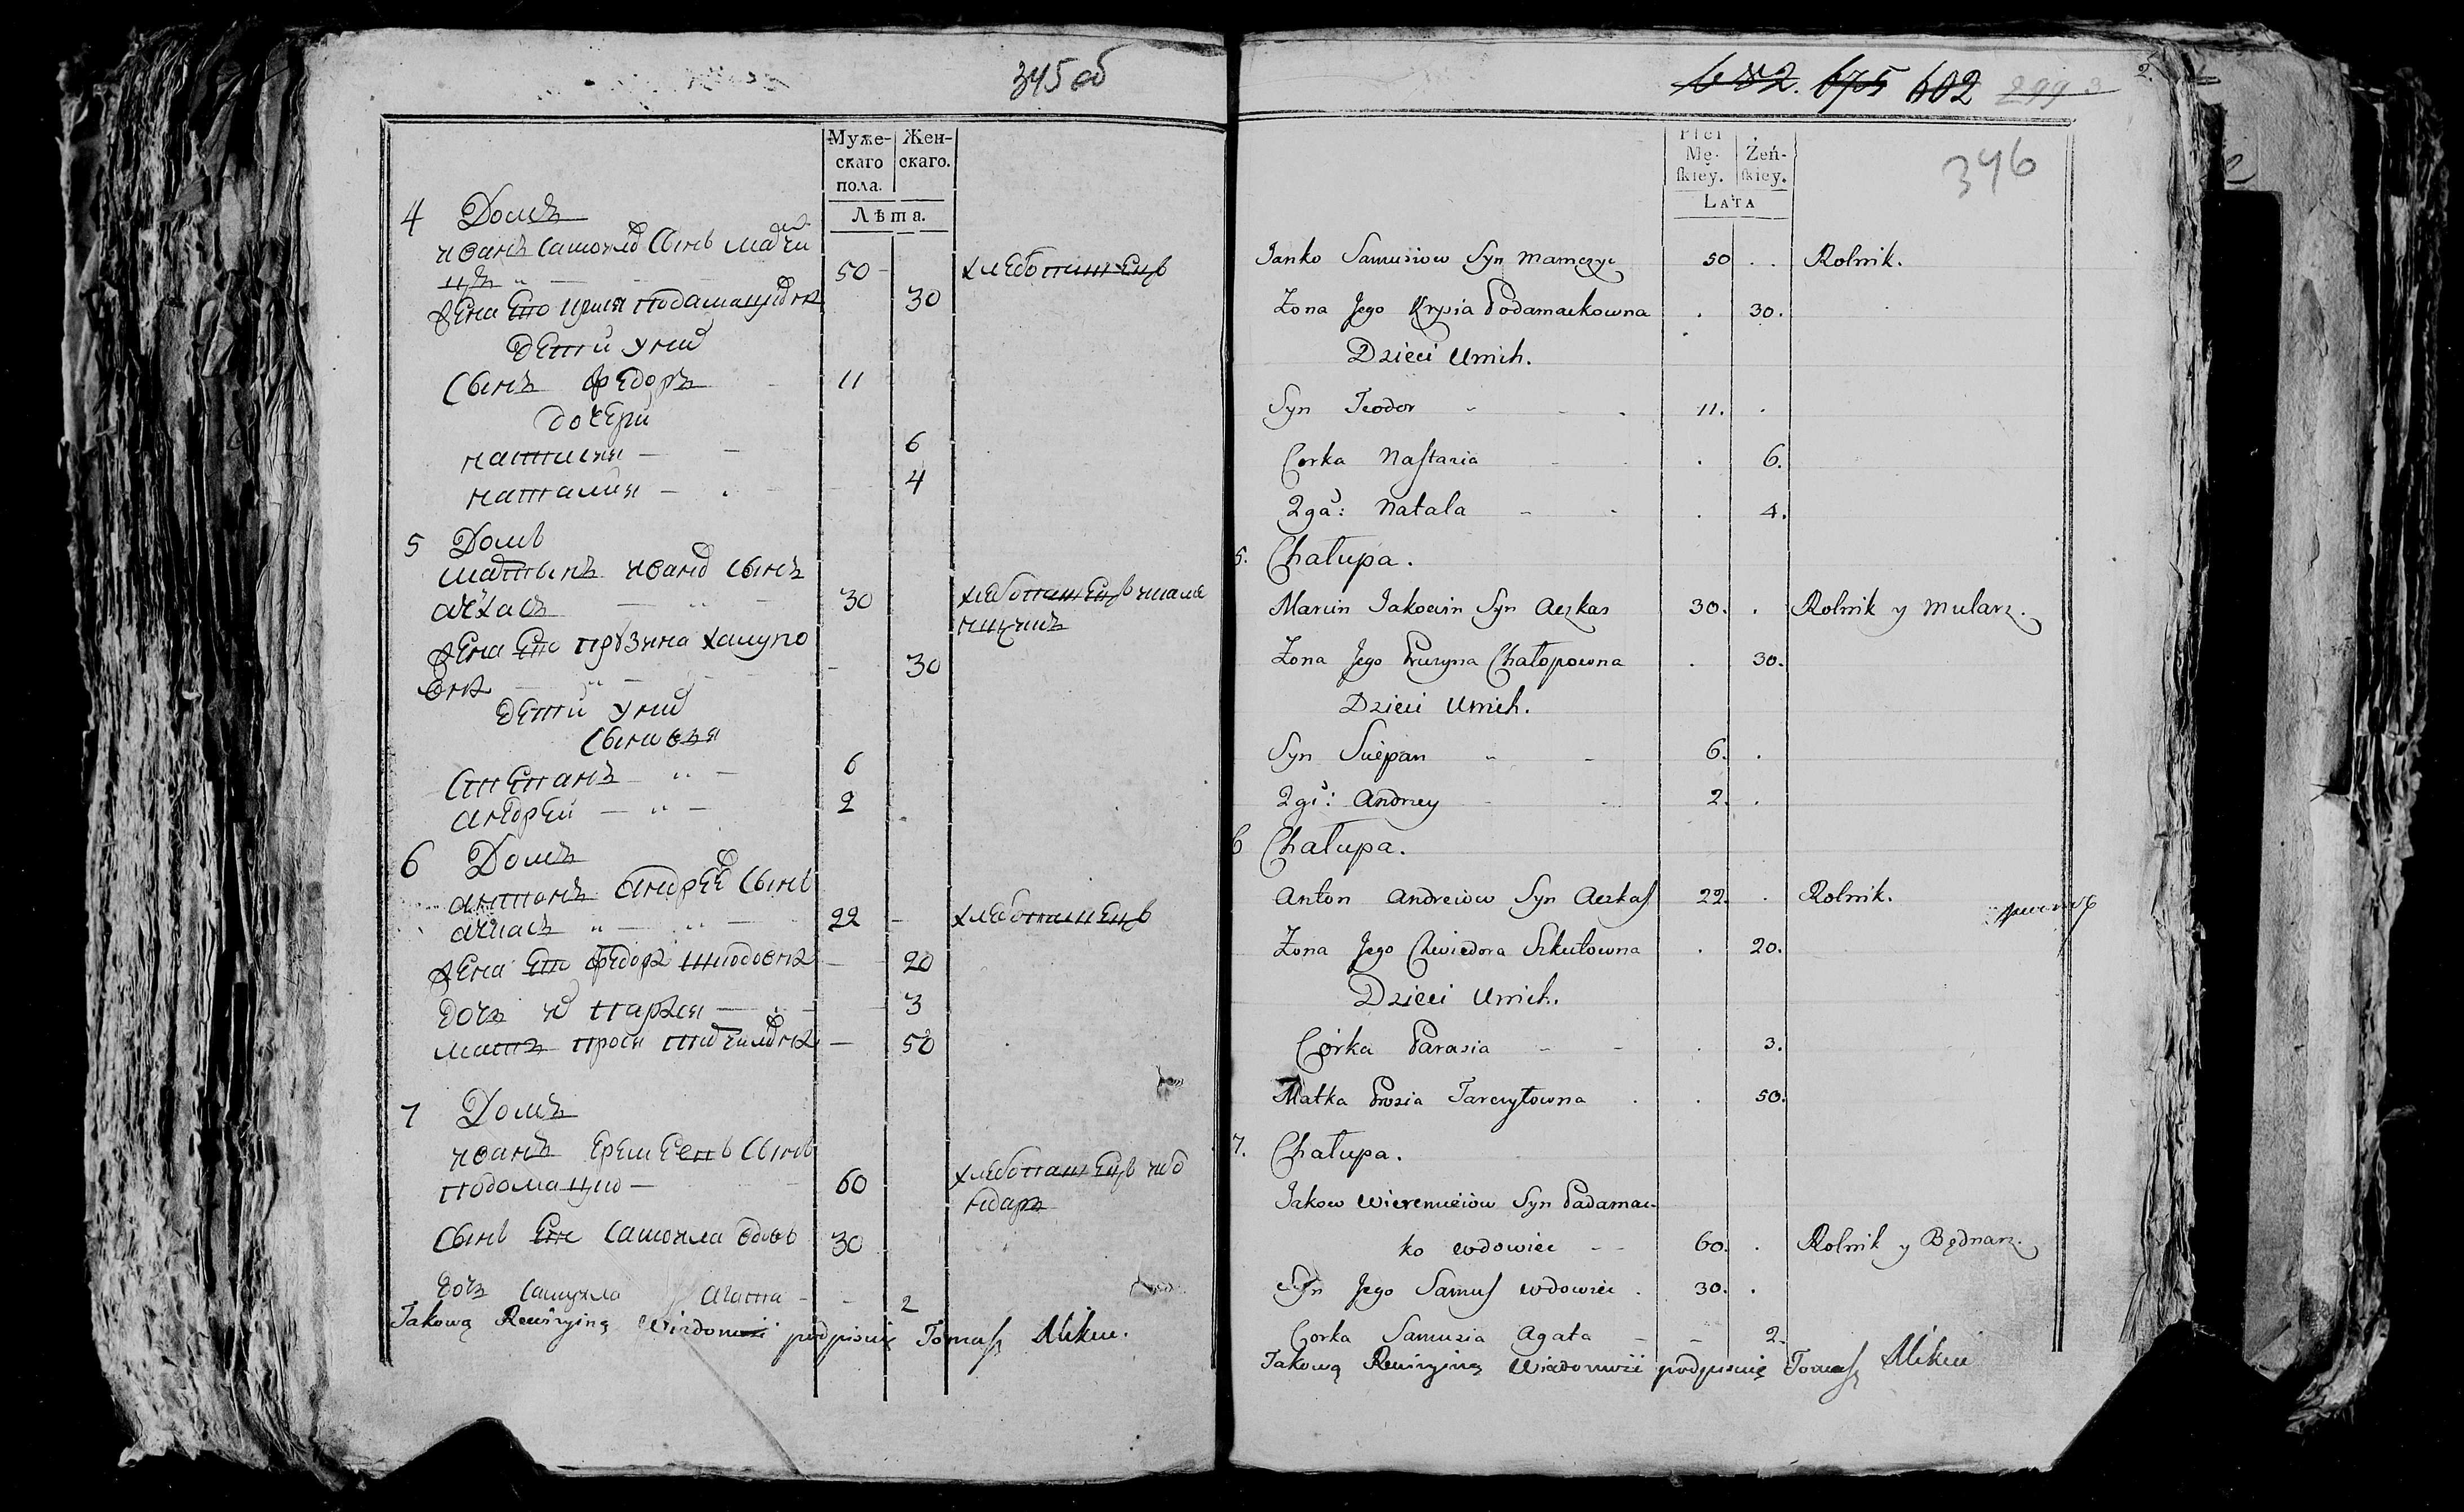 345 об
Муже-
скаго
пола.
Жен-
скаго.
Лѣта.
4 Домъ
иванъ самойлов сынъ мамчи
цъ 50 хлебопашецъ
жена его крися подамацков 30
дети у них
сынъ федоръ 11
дочери
настасия 6
наталия 4
5 Домъ
мартынъ иванов сынъ
ачкасъ 30 хлебопашецъ
жена его прузына халупо
вна 30
дети у них
сыновья
степанъ 6
андрей 2
6 Домъ
антонъ андреев сынъ
ачкасъ 22 хлебопашецъ
жена его федора 20
дочь их парася 3
мать прося 50
7 Домъ
иванъ еремеевъ сынъ
подомацко 60 хлебопашецъ и бо
ндаръ
сынъ его самойла вдовъ 30
дочь самуила агата 2
Takową Rewizyiną Wiadomość podpisuię Tomasz
682. 675 602 299
2.
346
Płci
Mę-
skiey.
Żeń-
skiey.
LATA
Janko Samusiow Syn Mamczyc 50 . . Rolnik.
Żona Jego Krysia Podamackowna . 30.
Dzieci Umich.
Syn Teodor 11. .
Corka Nastazia . 6.
2ga: Natala . 4.
5. Chałupa.
Marcin Jakowin Syn Aczkas 30. . Rolnik y Mularz.
Żona Jego Pruzyna Chałopowna . 30.
Dzieci Umich.
Syn Sciepan 6. .
2gi: Andrzey 2. .
6 Chałupa.
Anton Andreiow Syn Aczkas 22. . Rolnik.
Żona Jego Chwiedora Szkutowna . 20.
Dzieci Umich.
Córka Parasia . 3.
Matka Prosia Tarczytowna . 50.
7. Chałupa.
Jakow Wieremieiow Syn Padamac-
ko wdowiec 60. . Rolnik y Będnarz.
Syn Jego Samus wdowiec . 30. .
Corka Samusia Agata 2.
Takową Rewizyiną Wiadomość podpisuię Tomasz